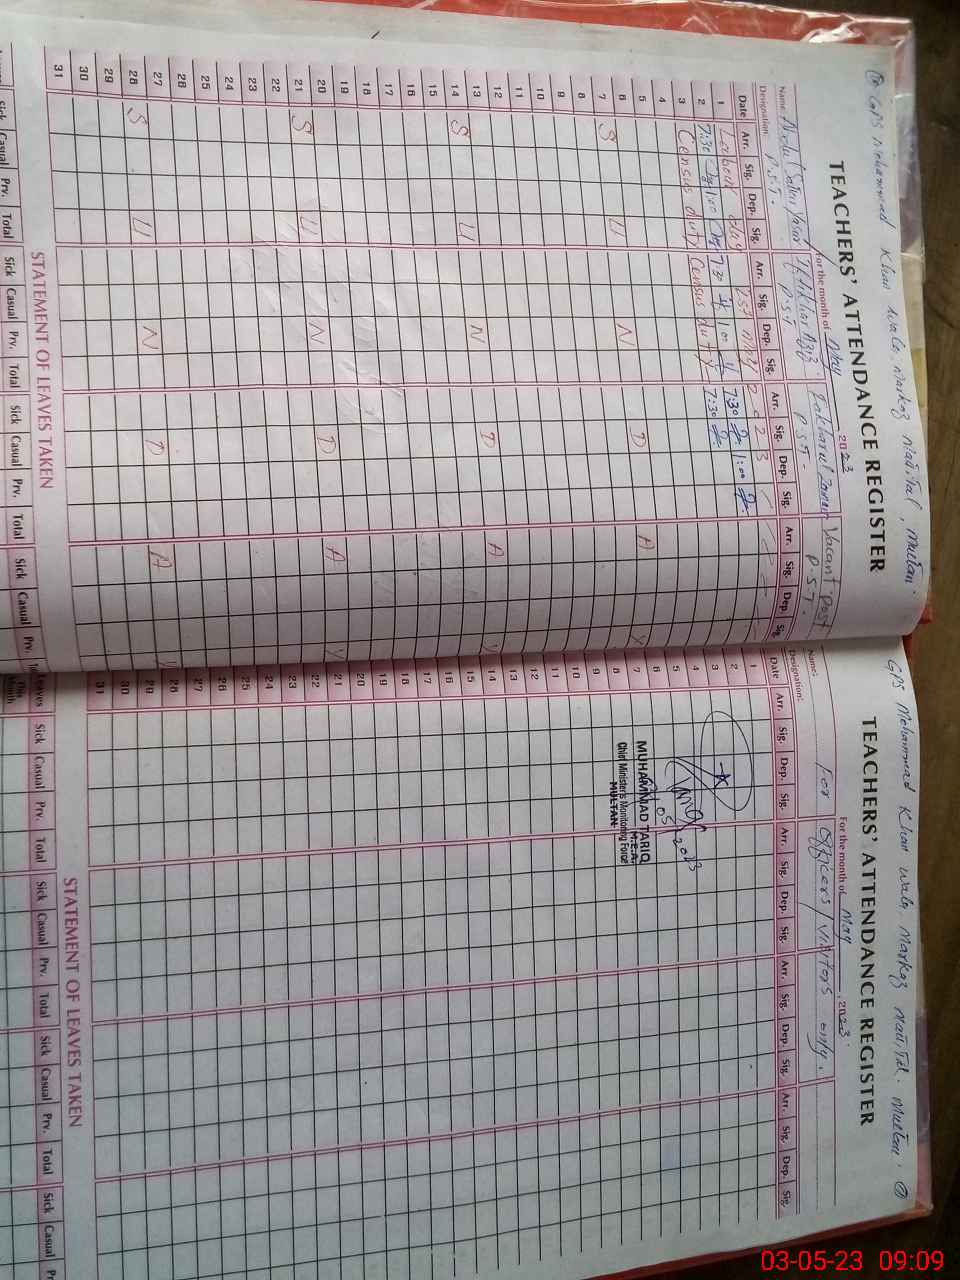 GPS Mohammad Khan wala, Markaz Mailsi, Multan.
TEACHERS' ATTENDANCE REGISTER
For the month of May 2023
Name: Abdul Sattar Yasir Iftikhar Aziz Fakharul Zaman Vacant post
Designation: P.S.T. P.S.T P.S.T. P.S.T.
Date Arr. Sig. Dep. Sig. Arr. Sig. Dep. Sig. Arr. Sig. Dep. Sig. Arr. Sig. Dep. Sig.
1 Labour day 1st May 2023
2 7:30 1:00 7:30 1:00 7:30 1:00
3 Census duty Census duty 7:30
4
5
6
7 S U N D A Y
8
9
10
11
12
13
14 S U N D A Y
15
16
17
18
19
20
21 S U N D A Y
22
23
24
25
26
27
28 S U N D A Y
29
30
31
STATEMENT OF LEAVES TAKEN
Sick Casual Prv. Total Sick Casual Prv. Total Sick Casual Prv. Total Sick Casual Prv.
GPS Mohammad Khan wala, Markaz Mailsi. Multan.
TEACHERS' ATTENDANCE REGISTER
For the month of May, 2023
Name: For Officers / Visitors only.
Designation:
Date Arr. Sig. Dep. Sig. Arr. Sig. Dep. Sig. Arr. Sig. Dep. Sig. Arr. Sig. Dep. Sig.
1
2
3
4
5
6
7
8
9
10
11
12
13
14
15
16
17
18
19
20
21
22
23
24
25
26
27
28
29
30
31
05/2023
MUHAMMAD TARIQ
M.E.A.
Chief Minister's Monitoring Force
MULTAN
STATEMENT OF LEAVES TAKEN
Leaves This Month Sick Casual Prv. Total Sick Casual Prv. Total Sick Casual Prv. Total Sick Casual Pr
03-05-23 09:09